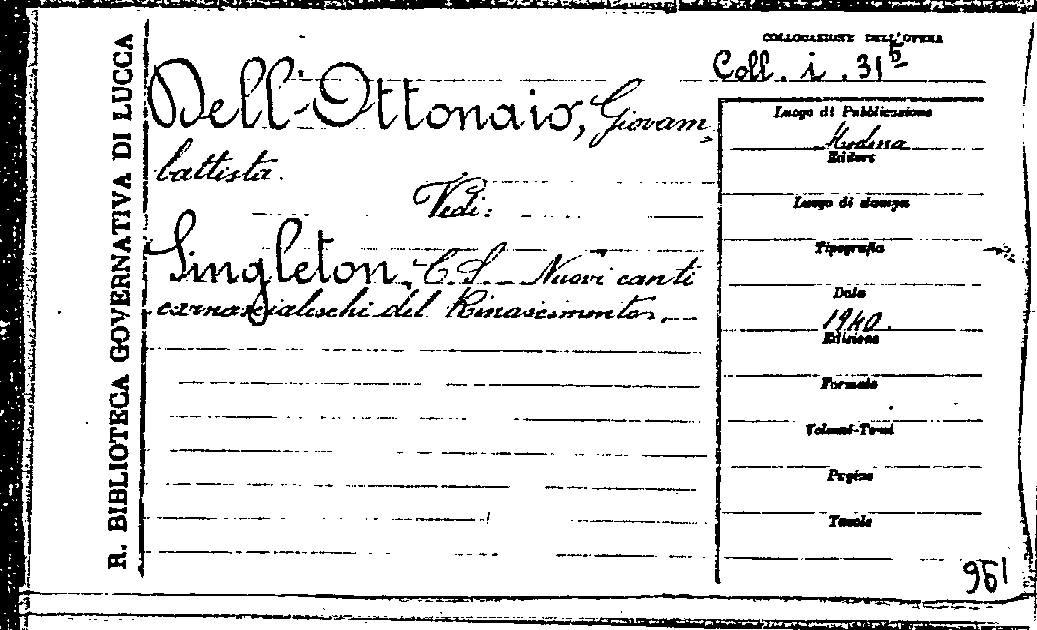 R. BIBLIOTECA GOVERNATIVA DI LUCCA
COLLOCAZIONE DELL'OPERA
Coll. i. 31 5
Dell'Ottonaio, Giovam-
battista.
Vedi:
Singleton, C. S. Nuovi canti
carnascialeschi del Rinascimento.
Luogo di Pubblicazione
Modena
Editore
Luogo di stampa
Tipografia
Data
1940.
Edizione
Formato
Volumi-Tomi
Pagine
Tavole
961